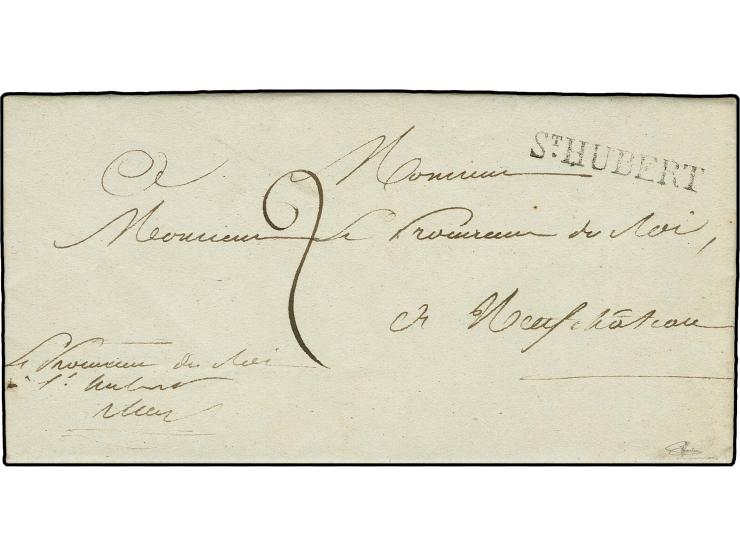 Sᵀ. HUBERT
A Monsieur
Monsieur Le Procureur du Roi,
à Neufchâteau
Le Procureur du Roi
à St. hubert